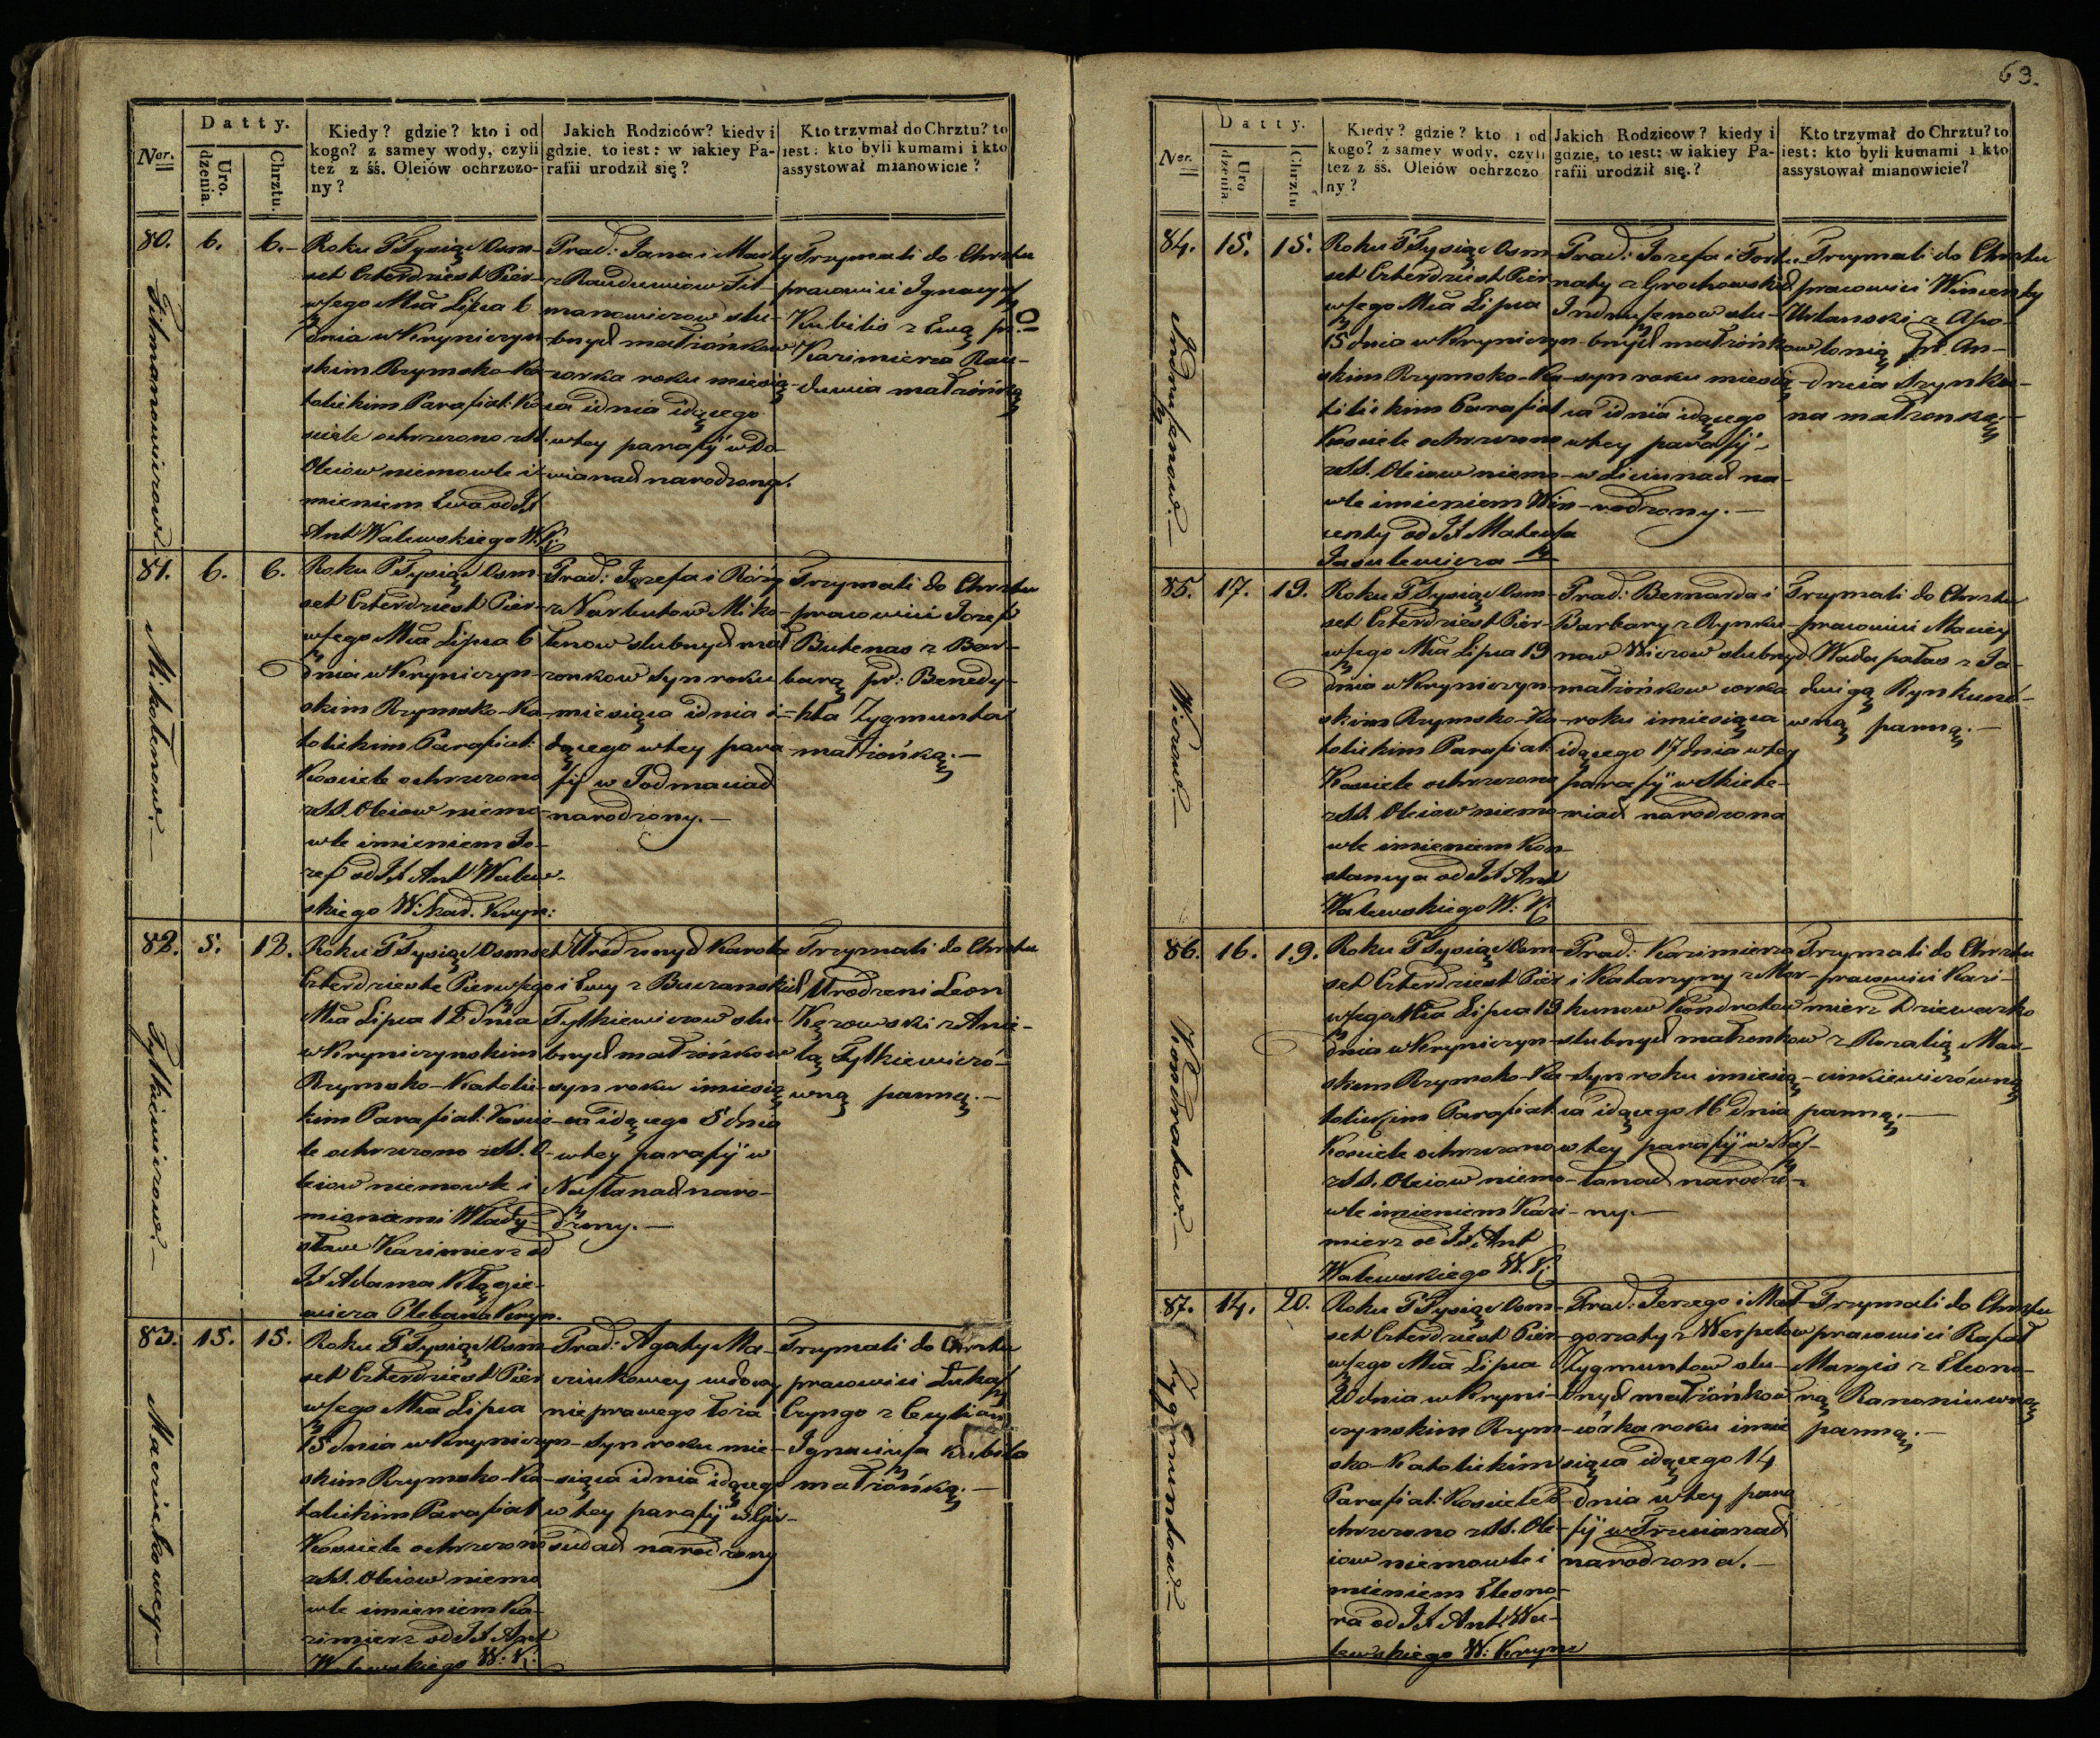 63.
Datty.
Ner.
Uro.
dzenia.
Chrztu.
Kiedy? gdzie? kto i od
kogo? z samey wody, czyli
tez z śś. Oleiów ochrzczo-
ny?
Jakich Rodziców? kiedy i
gdzie, to iest: w iakiey Pa-
rafii urodził się?
Kto trzymał do Chrztu? to
iest: kto byli kumami i kto
assystował mianowicie?
80. 6. 6.
Roku Tysiąc Osm-
set Czterdziest Pier-
wszego Mca Lipca 6
dnia w Kryniczyn-
skim Rzymsko-Ka-
tolickim Parafial: Ko-
sciele ochrzczono z SS.
Oleiow niemowle i-
mieniem Ewa od JX
Ant Walewskiego W. K.
Prad: Jana i Marty
z Rauduwiow Fil-
manowiczow slu-
bnych małżonkow
corka roku miesią-
ca i dnia idącego
w tey parafij w Do-
wianach narodzona.
Trzymali do Chrztu
pracowici Ignacy
Kubilis z Ewą pr.
Kazimierza Rau-
duwia małżonką
Filmanowiczow
81. 6. 6.
Roku Tysiąc Osm-
set Czterdziest Pier-
wszego Mca Lipca 6
dnia w Kryniczyn-
skim Rzymsko-Ka-
tolickim Parafial:
Kosciele ochrzczono
z SS. Oleiow niemo-
wle imieniem Jo-
zef od JX Ant Walew-
skiego W: Krad. Kryn:
Prad: Jozefa i Róży
z Narbutow Miko-
łenow slubnych mał
zonkow syn roku
miesiąca i dnia i-
dącego w tey para
fij w Podmaciach
narodzony.—
Trzymali do Chrztu
pracowici Jozef
Butenas z Bar-
barą pr: Benedy-
kta Zygmunta
małżonką.—
Mikołenow.—
82. 5. 12.
Roku Tysiąc Osmset
Czterdzieste Pierwszego
Mca Lipca 12 dnia
w Kryniczynskim
Rzymsko-Katolic-
kim Parafial: Koscie-
le ochrzczono z SS. O-
leiow niemowle i
mionami Włady-
sław Kazimierz od
JX Adama Kłągie-
wicza Plebana Kryn.
Urodzonych Karola
i Ewy z Buczanskich
Fylkiewiczow slu-
bnych małżonkow
syn roku i miesią
ca idącego 5 dnia
w tey parafij w
Naszlanach naro-
dzony.—
Trzymali do Chrztu
Urodzeni Leon
Kęzowski z Anie-
lą Fylkiewiczó-
wną panną.—
Fylkiewiczow.—
83. 15. 15.
Roku Tysiąc Osm-
set Czterdziest Pier
wszego Mca Lipca
15 dnia w Krynicyn-
skim Rzymsko-Ka-
tolickim Parafial
Kosciele ochrzczono
z SS. Oleiow niemo
wle imieniem Ka-
zimierz od JX Ant
Walewskiego W: K:
Prad: Agaty Ma-
czinkowey wdowy
nieprawego łoża
syn roku mie-
siąca i dnia idącego
w tey parafij w Gi-
sudach narodzony
Trzymali do Chrztu
pracowici Łukasz
Czyngo z Cecylią
Ignaciusza Kubila
małżonką.—
Maczinkowey
Datty.
Ner.
Uro
dzenia.
Chrztu
Kiedy? gdzie? kto i od
kogo? z samey wody, czyli
tez z śś. Oleiów ochrzczo
ny?
Jakich Rodzicow? kiedy i
gdzie, to iest: w iakiey Pa-
rafii urodził się.?
Kto trzymał do Chrztu? to
iest: kto byli kumami i kto
assystował mianowicie?
84. 15. 15.
Roku Tysiąc Osm
set Czterdziest Pier
wszego Mca Lipca
15 dnia w Krynicyn-
skim Rzymsko-Ka-
tolickim Parafial
Kosciele ochrzczono
z SS. Oleiow niemo-
wle imieniem Win-
centy od JX Mateusza
Jasulewicza
Prad: Jozefa i Fortu
naty z Grochowskich
Indruszenow slu-
bnych małżonkow
syn roku miesią-
ca i dnia idącego
w tey parafij
w Liciunach na-
rodzony.—
Trzymali do Chrztu
pracowici Wincenty
Urlanski z Apo-
lonią pr. An-
drzeia Szynku-
na małzonką.—
Indruszenow.—
85. 17. 19.
Roku Tysiąc Osm-
set Czterdziest Pier-
wszego Mca Lipca 19
dnia w Krynicyn-
skim Rzymsko-Ka-
tolickim Parafial:
Kosciele ochrzczono
z SS. Oleiow niemo
wle imieniem Kon-
stancya od JX Ant
Walewskiego W: K:
Prad: Bernarda i
Barbary z Rynku-
now Wiczow slubnych
małżonkow corka
roku i miesiąca
idącego 17 dnia w tey
parafij w Skiele-
riach narodzona
Trzymali do Chrztu
pracowici Maciey
Wadapalas z Ja-
dwigą Rynkunó-
wną panną.—
Wiczow.—
86. 16. 19.
Roku Tysiąc Osm-
set Czterdziest Pier
wszego Mca Lipca 19
dnia w Krynicyn-
skim Rzymsko-Ka-
tolickim Parafial:
Kosciele ochrzczono
z SS. Oleiow niemo-
wle imieniem Kazi-
mierz od JX Ant
Walewskiego W. K:
Prad: Kazimierza
i Katarzyny z Mar-
kunow Kondratow
slubnych małzonkow
syn roku i miesią-
ca idącego 16 dnia
w tey parafij w Nasz-
lanach narodzo-
ny.—
Trzymali do Chrztu
pracowici Kazi-
mierz Dziewaszko
z Rozalią Mar-
cinkiewiczówną
panną.—
Kondratow.—
87. 14. 20.
Roku Tysiąc Osm-
set Czterdziest Pier-
wszego Mca Lipca
20 dnia w Kryni-
czynskim Rzym-
sko-Katolickim
Parafial: Kosciele o-
chrzczono z SS. Ole-
iow niemowle i
mieniem Eleono-
ra od JX Ant: Wa-
lewskiego W: Kryn:
Prad: Jerzego i Mał-
gorzaty z Werpetow
Zygmuntow slu-
bnych małżonkow
córka roku i mie
siąca idącego 14
dnia w tey para
fij w Trusianach
narodzona.—
Trzymali do Chrztu
pracowici Rafał
Margis z Eleono-
rą Rananiuwną
panną.—
Zygmuntow.—